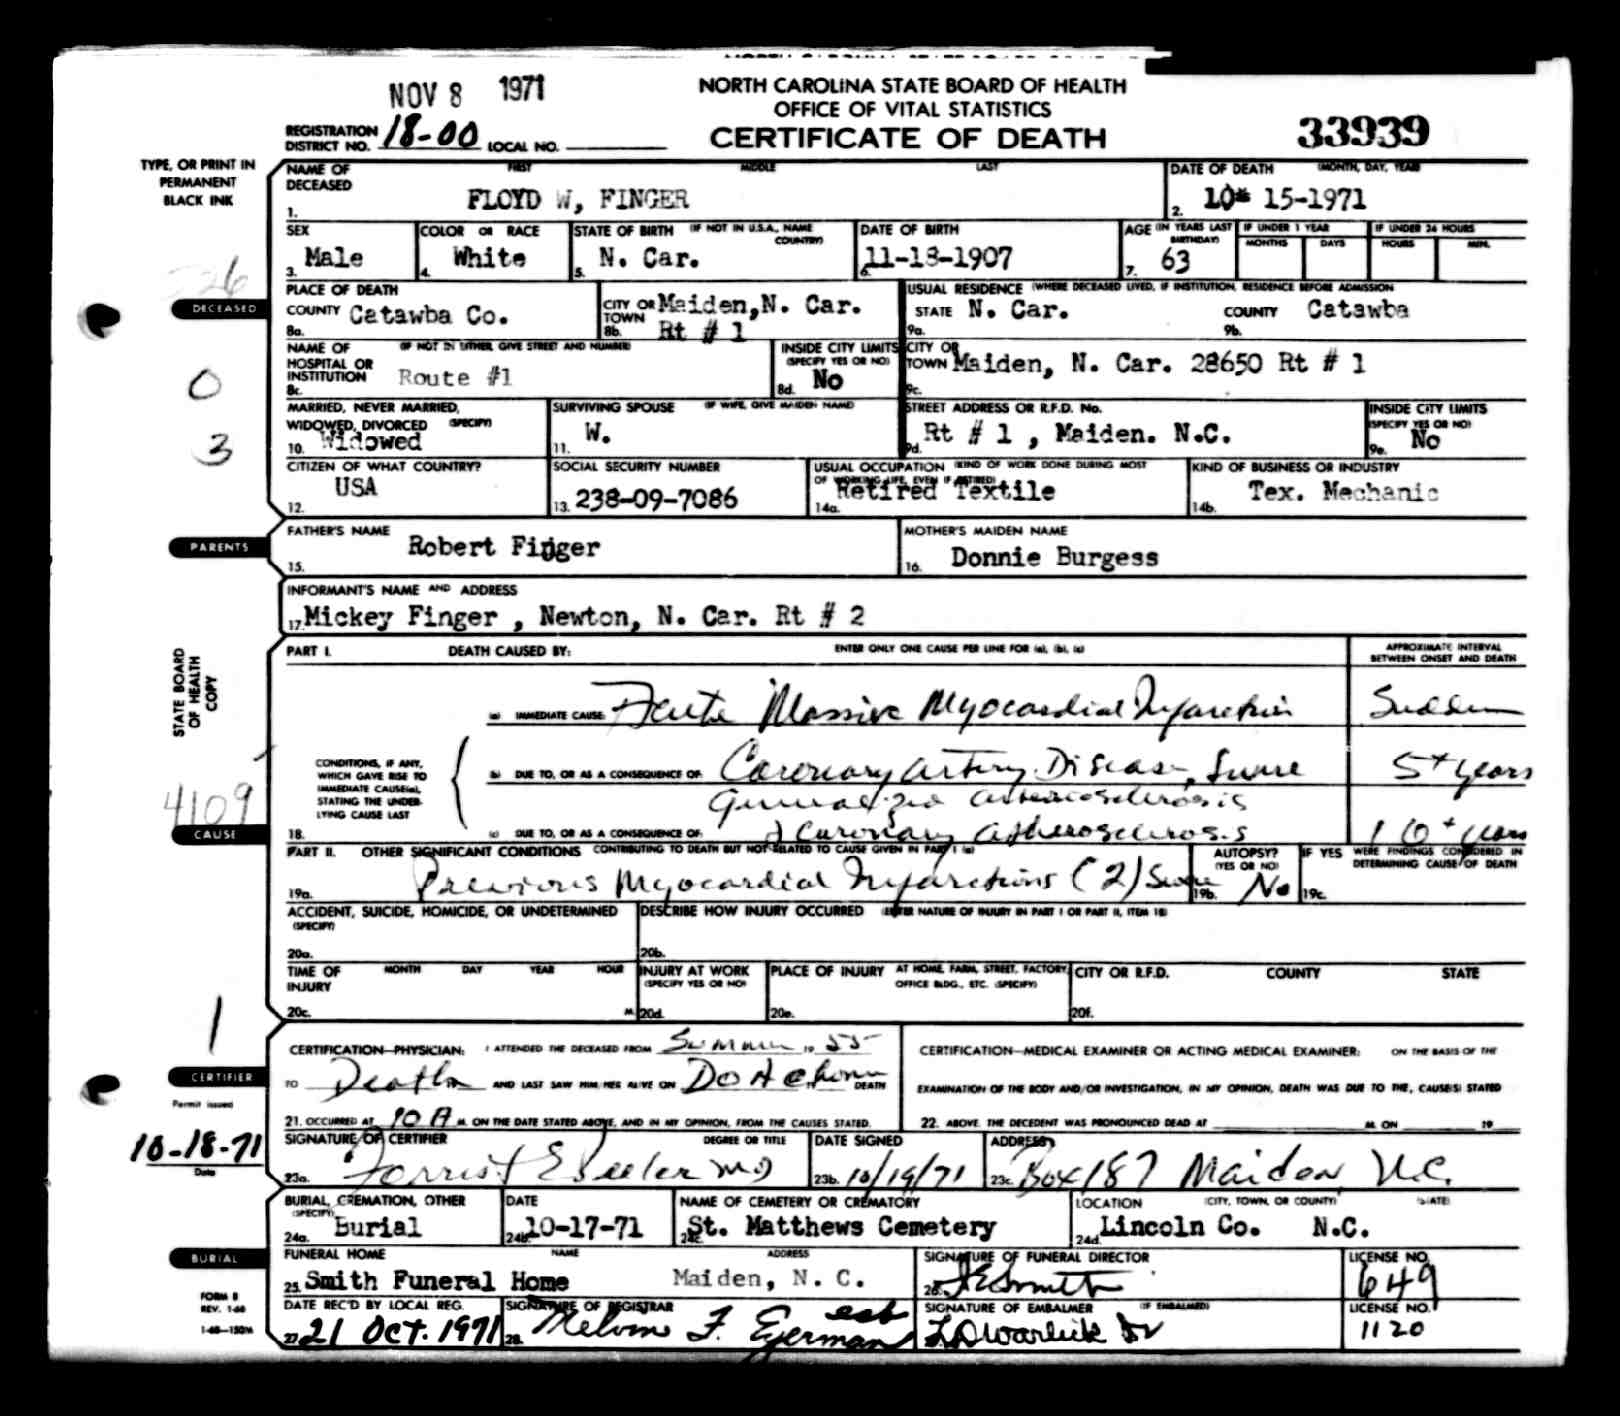 NOV 8 1971
NORTH CAROLINA STATE BOARD OF HEALTH
OFFICE OF VITAL STATISTICS
REGISTRATION DISTRICT NO. 18-00 LOCAL NO.
CERTIFICATE OF DEATH
33939
TYPE, OR PRINT IN PERMANENT BLACK INK
NAME OF DECEASED FIRST MIDDLE LAST
1. FLOYD W, FINGER
DATE OF DEATH (MONTH, DAY, YEAR)
2. 10* 15-1971
SEX
3. Male
COLOR OR RACE
4. White
STATE OF BIRTH (IF NOT IN U.S.A., NAME COUNTRY)
5. N. Car.
DATE OF BIRTH
6. 11-18-1907
AGE (IN YEARS LAST BIRTHDAY)
7. 63
IF UNDER 1 YEAR MONTHS DAYS
IF UNDER 24 HOURS HOURS MIN.
DECEASED
PLACE OF DEATH
COUNTY Catawba Co.
8a.
CITY OR TOWN Maiden, N. Car.
8b. Rt # 1
USUAL RESIDENCE (WHERE DECEASED LIVED, IF INSTITUTION, RESIDENCE BEFORE ADMISSION
STATE N. Car. COUNTY Catawba
9a. 9b.
0
3
NAME OF HOSPITAL OR INSTITUTION (IF NOT IN EITHER, GIVE STREET AND NUMBER)
8c. Route #1
INSIDE CITY LIMITS (SPECIFY YES OR NO)
8d. No
CITY OR TOWN Maiden, N. Car. 28650 Rt # 1
9c.
MARRIED, NEVER MARRIED, WIDOWED, DIVORCED (SPECIFY)
10. Widowed
SURVIVING SPOUSE (IF WIFE, GIVE MAIDEN NAME)
11. W.
STREET ADDRESS OR R.F.D. No.
9d. Rt # 1 , Maiden. N.C.
INSIDE CITY LIMITS (SPECIFY YES OR NO)
9e. No
CITIZEN OF WHAT COUNTRY?
12. USA
SOCIAL SECURITY NUMBER
13. 238-09-7086
USUAL OCCUPATION (KIND OF WORK DONE DURING MOST OF WORKING LIFE, EVEN IF RETIRED)
14a. Retired Textile
KIND OF BUSINESS OR INDUSTRY
14b. Tex. Mechanic
PARENTS
FATHER'S NAME
15. Robert Finger
MOTHER'S MAIDEN NAME
16. Donnie Burgess
INFORMANT'S NAME AND ADDRESS
17. Mickey Finger , Newton, N. Car. Rt # 2
STATE BOARD OF HEALTH COPY
PART I. DEATH CAUSED BY: ENTER ONLY ONE CAUSE PER LINE FOR (a), (b), (c)
APPROXIMATE INTERVAL BETWEEN ONSET AND DEATH
(a) IMMEDIATE CAUSE: Acute Massive Myocardial Infarction Sudden
CONDITIONS, IF ANY, WHICH GAVE RISE TO IMMEDIATE CAUSE(a), STATING THE UNDERLYING CAUSE LAST
(b) DUE TO, OR AS A CONSEQUENCE OF: Coronary Artery Disease, Severe 5+ years
Generalized arteriosclerosis
(c) DUE TO, OR AS A CONSEQUENCE OF: & Coronary atherosclerosis 10+ years
18.
4109
CAUSE
PART II. OTHER SIGNIFICANT CONDITIONS CONTRIBUTING TO DEATH BUT NOT RELATED TO CAUSE GIVEN IN PART I (a)
19a. Previous Myocardial Infarctions (2) Severe
AUTOPSY? (YES OR NO)
19b. No
IF YES WERE FINDINGS CONSIDERED IN DETERMINING CAUSE OF DEATH
19c.
ACCIDENT, SUICIDE, HOMICIDE, OR UNDETERMINED (SPECIFY)
20a.
DESCRIBE HOW INJURY OCCURRED (ENTER NATURE OF INJURY IN PART I OR PART II, ITEM 18)
20b.
TIME OF INJURY MONTH DAY YEAR HOUR
20c. M.
INJURY AT WORK (SPECIFY YES OR NO)
20d.
PLACE OF INJURY AT HOME, FARM, STREET, FACTORY, OFFICE BLDG., ETC. (SPECIFY)
20e.
CITY OR R.F.D. COUNTY STATE
20f.
1
CERTIFIER
CERTIFICATION—PHYSICIAN: I ATTENDED THE DECEASED FROM Summer 19 55
TO Death AND LAST SAW HIM/HER ALIVE ON DOA @ home DEATH
21. OCCURRED AT 10 A M. ON THE DATE STATED ABOVE, AND IN MY OPINION, FROM THE CAUSES STATED.
CERTIFICATION—MEDICAL EXAMINER OR ACTING MEDICAL EXAMINER: ON THE BASIS OF THE
EXAMINATION OF THE BODY AND/OR INVESTIGATION, IN MY OPINION, DEATH WAS DUE TO THE, CAUSE(S) STATED
22. ABOVE. THE DECEDENT WAS PRONOUNCED DEAD AT M. ON 19
Permit issued
10-18-71
Date
SIGNATURE OF CERTIFIER DEGREE OR TITLE
23a. Forrest E Seeler MD
DATE SIGNED
23b. 10/19/71
ADDRESS
23c. Box 187 Maiden, N.C.
BURIAL, CREMATION, OTHER (SPECIFY)
24a. Burial
DATE
24b. 10-17-71
NAME OF CEMETERY OR CREMATORY
24c. St. Matthews Cemetery
LOCATION (CITY, TOWN, OR COUNTY) (STATE)
24d. Lincoln Co. N.C.
BURIAL
FUNERAL HOME NAME ADDRESS
25. Smith Funeral Home Maiden, N. C.
SIGNATURE OF FUNERAL DIRECTOR
26. Smith
LICENSE NO.
649
FORM 8
REV. 1-68
1-68—150M
DATE REC'D BY LOCAL REG.
27. 21 Oct. 1971
SIGNATURE OF REGISTRAR
28. Melvin F. Eyerman
SIGNATURE OF EMBALMER (IF EMBALMED)
Warlick Jr
LICENSE NO.
1120